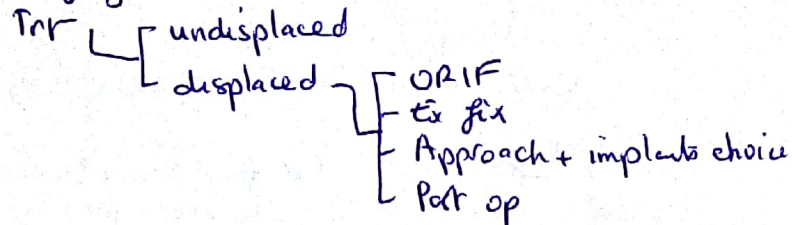 Trr
undisplaced
displaced
ORIF
Ex fix
Approach + implants choice
Post op